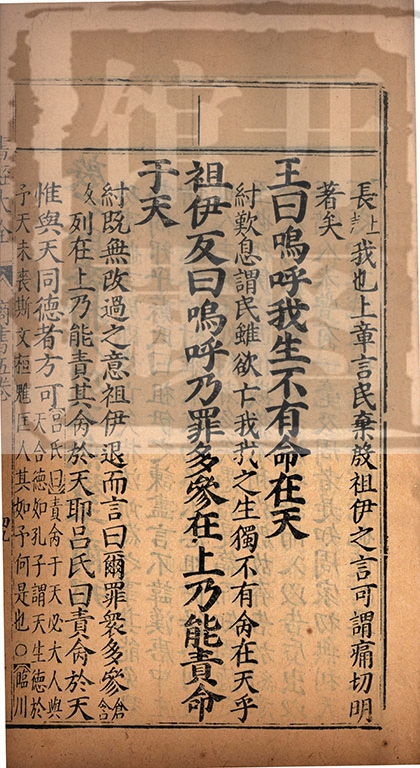 長我也上章言民棄放祖伊之言可謂痛切明
著矣
王曰嗚呼我生不有命在天
紂歎息謂民雖欲亡我我之生獨不有命在天乎
祖伊反曰嗚呼乃罪多參在上乃能責命
于天
紂既無改過之意祖伊退而言曰爾罪眾多參倉含
反列在上乃能責其命於天耶呂氏曰責命於天
惟與天同德者方可呂氏曰責命于天必大人與
天合德如孔子謂天生德於
予天未喪斯文桓魋匡人其如予何是也○臨川
書經大全 商書五卷